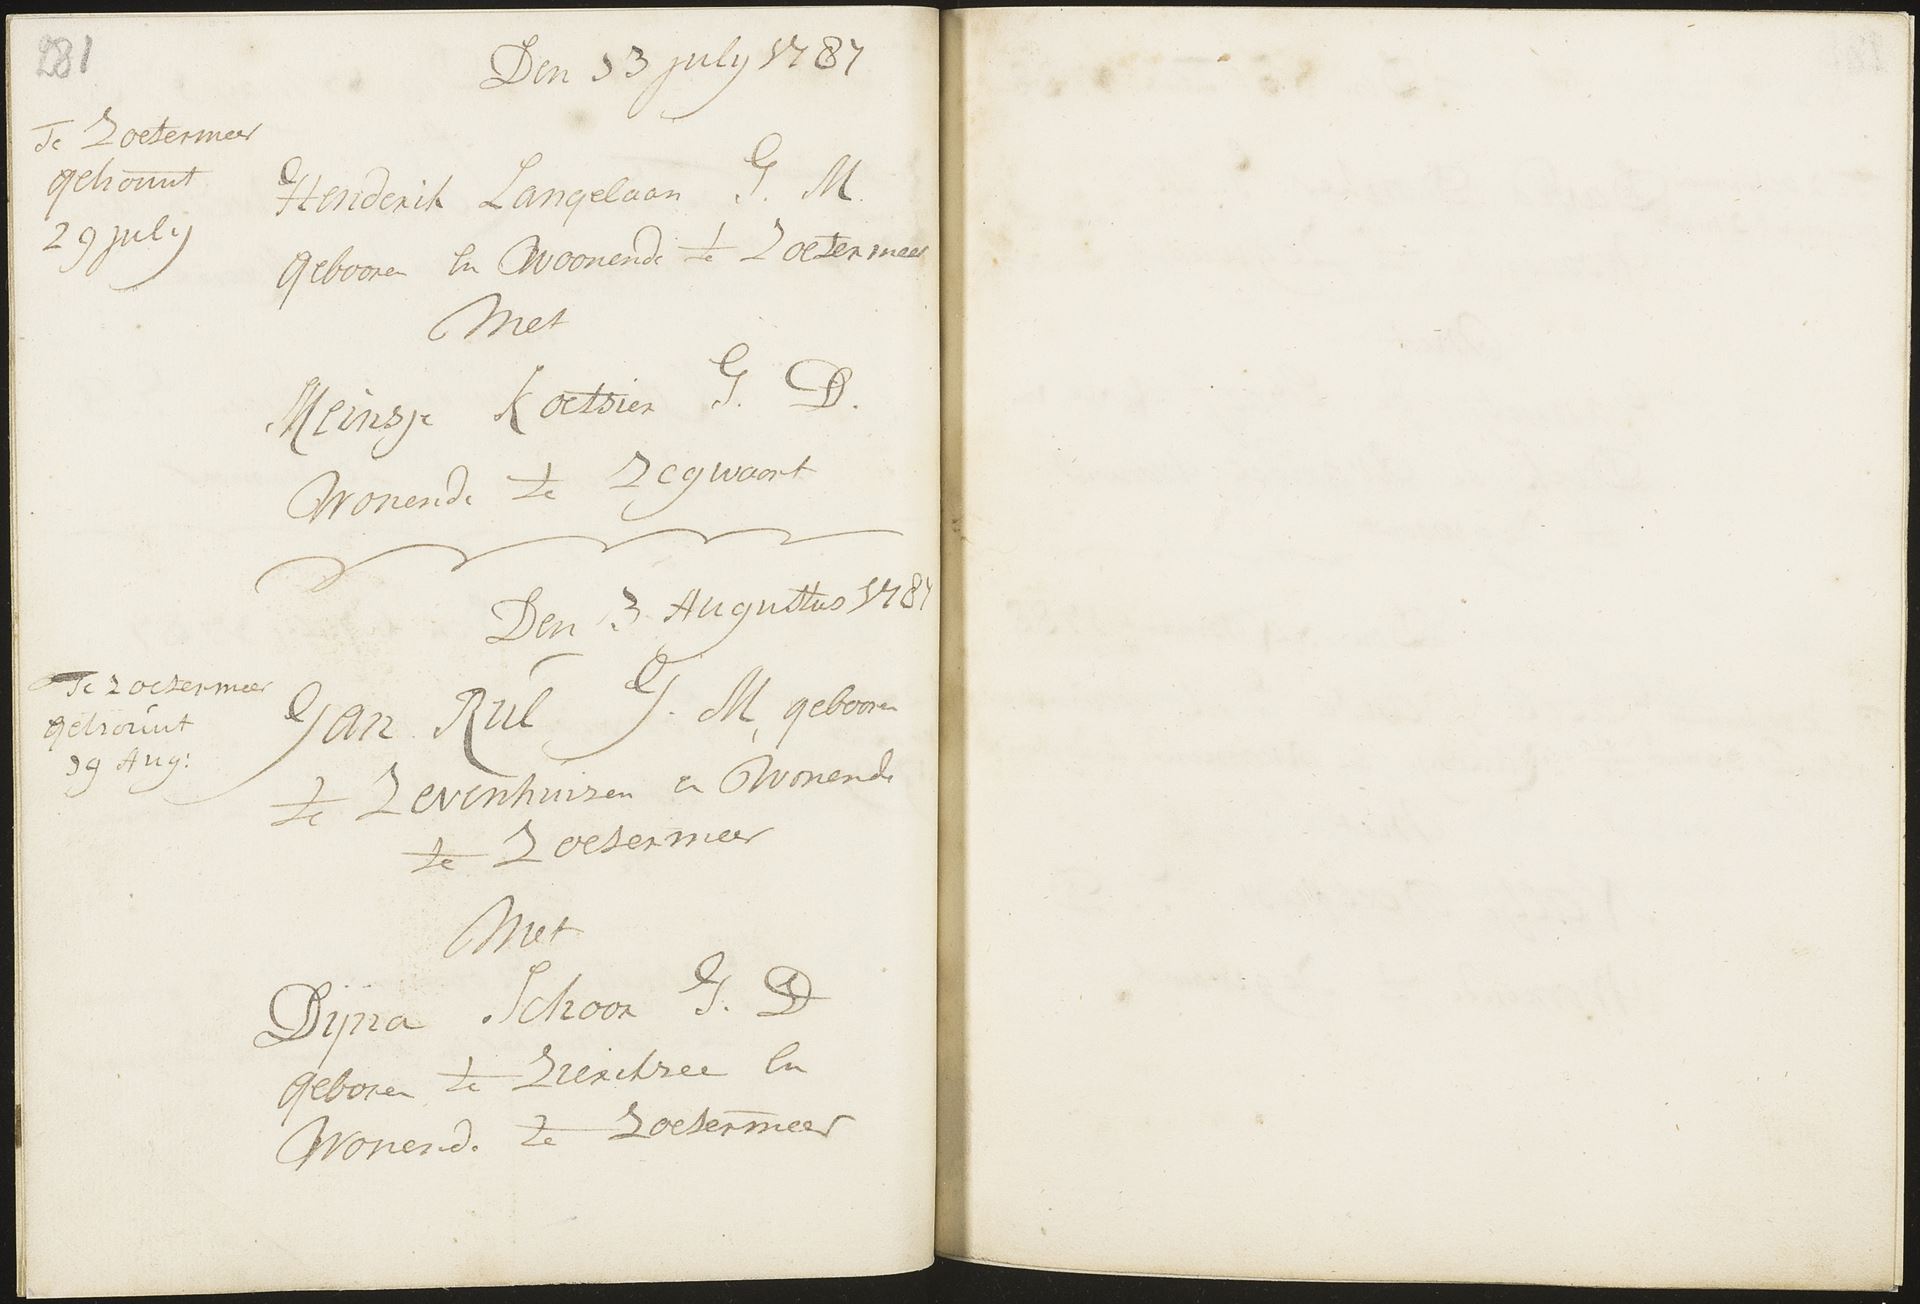 281
Den 13 july 1787
Te Zoetermeer
getrouwt
29 july
Henderik Langelaan J. M.
gebooren En Woonende te Zoetermeer
Met
Meinsje Koetsier J. D.
Wonende te Zegwaart
Den 3 Augustus 1787
Te Zoetermeer
getrouwt
19 Aug:
Jan Rul J. M. gebooren
te Zevenhuizen en Wonende
te Zoetermeer
Met
Dijna Schoor J. D
geboren te Zierikzee En
Wonende te Zoetermeer